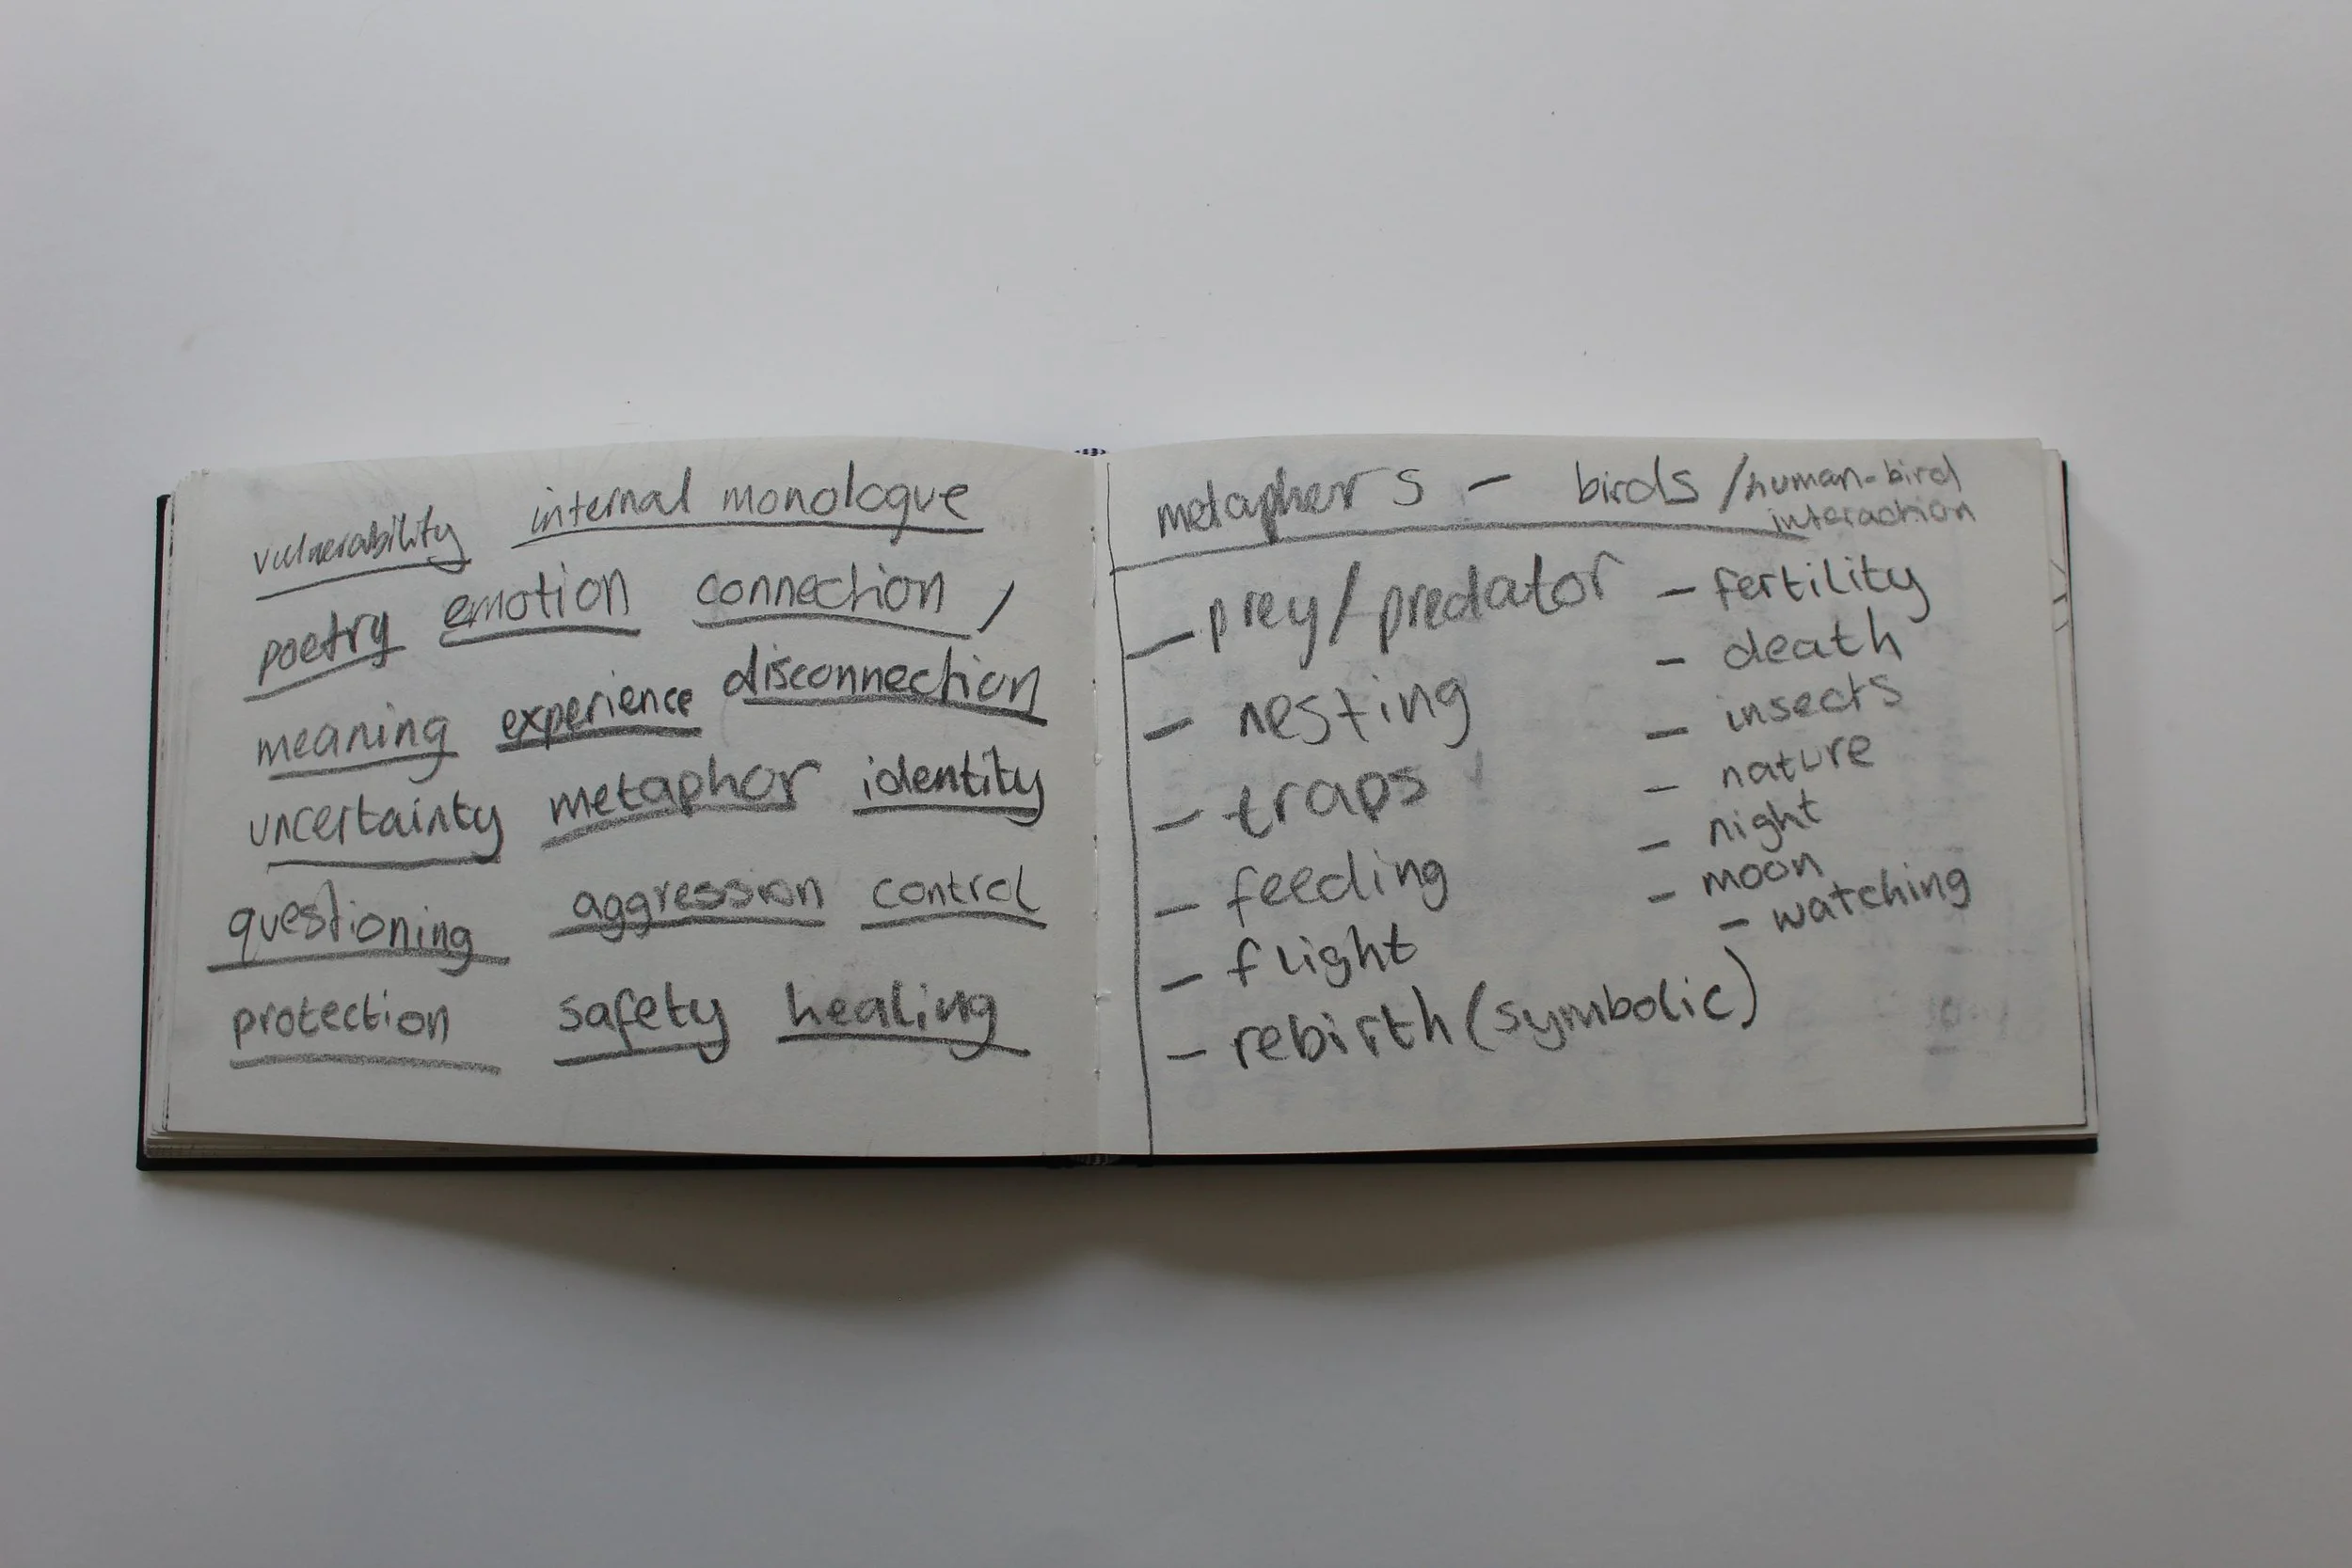 vulnerability internal monologue
poetry emotion connection /
meaning experience disconnection
uncertainty metaphor identity
questioning aggression control
protection safety healing
metaphors - birds / human-bird
interaction
- prey / predator
- nesting
- traps
- feeding
- flight
- rebirth (symbolic)
- fertility
- death
- insects
- nature
- night
- moon
- watching